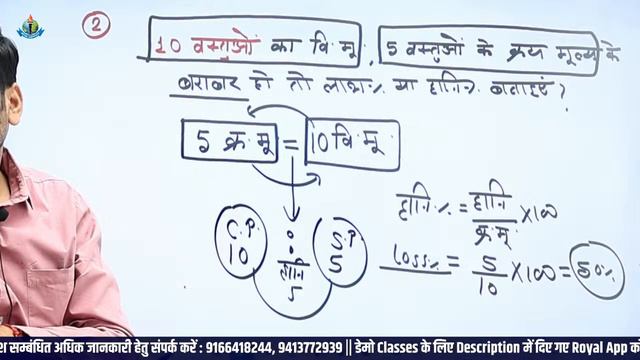 2
10 वस्तुओं का वि.मू. , 5 वस्तुओं के क्रय मूल्य के
बराबर हो तो लाभ% या हानि% बताइए ?
5 क्र.मू = 10 वि.मू
C.P. : S.P
10 हानि 5
5
हानि% = हानि/क्र.मू ×100
Loss% = 5/10 ×100 = 50%
श सम्बंधित अधिक जानकारी हेतु संपर्क करें : 9166418244, 9413772939 || डेमो Classes के लिए Description में दिए गए Royal App को